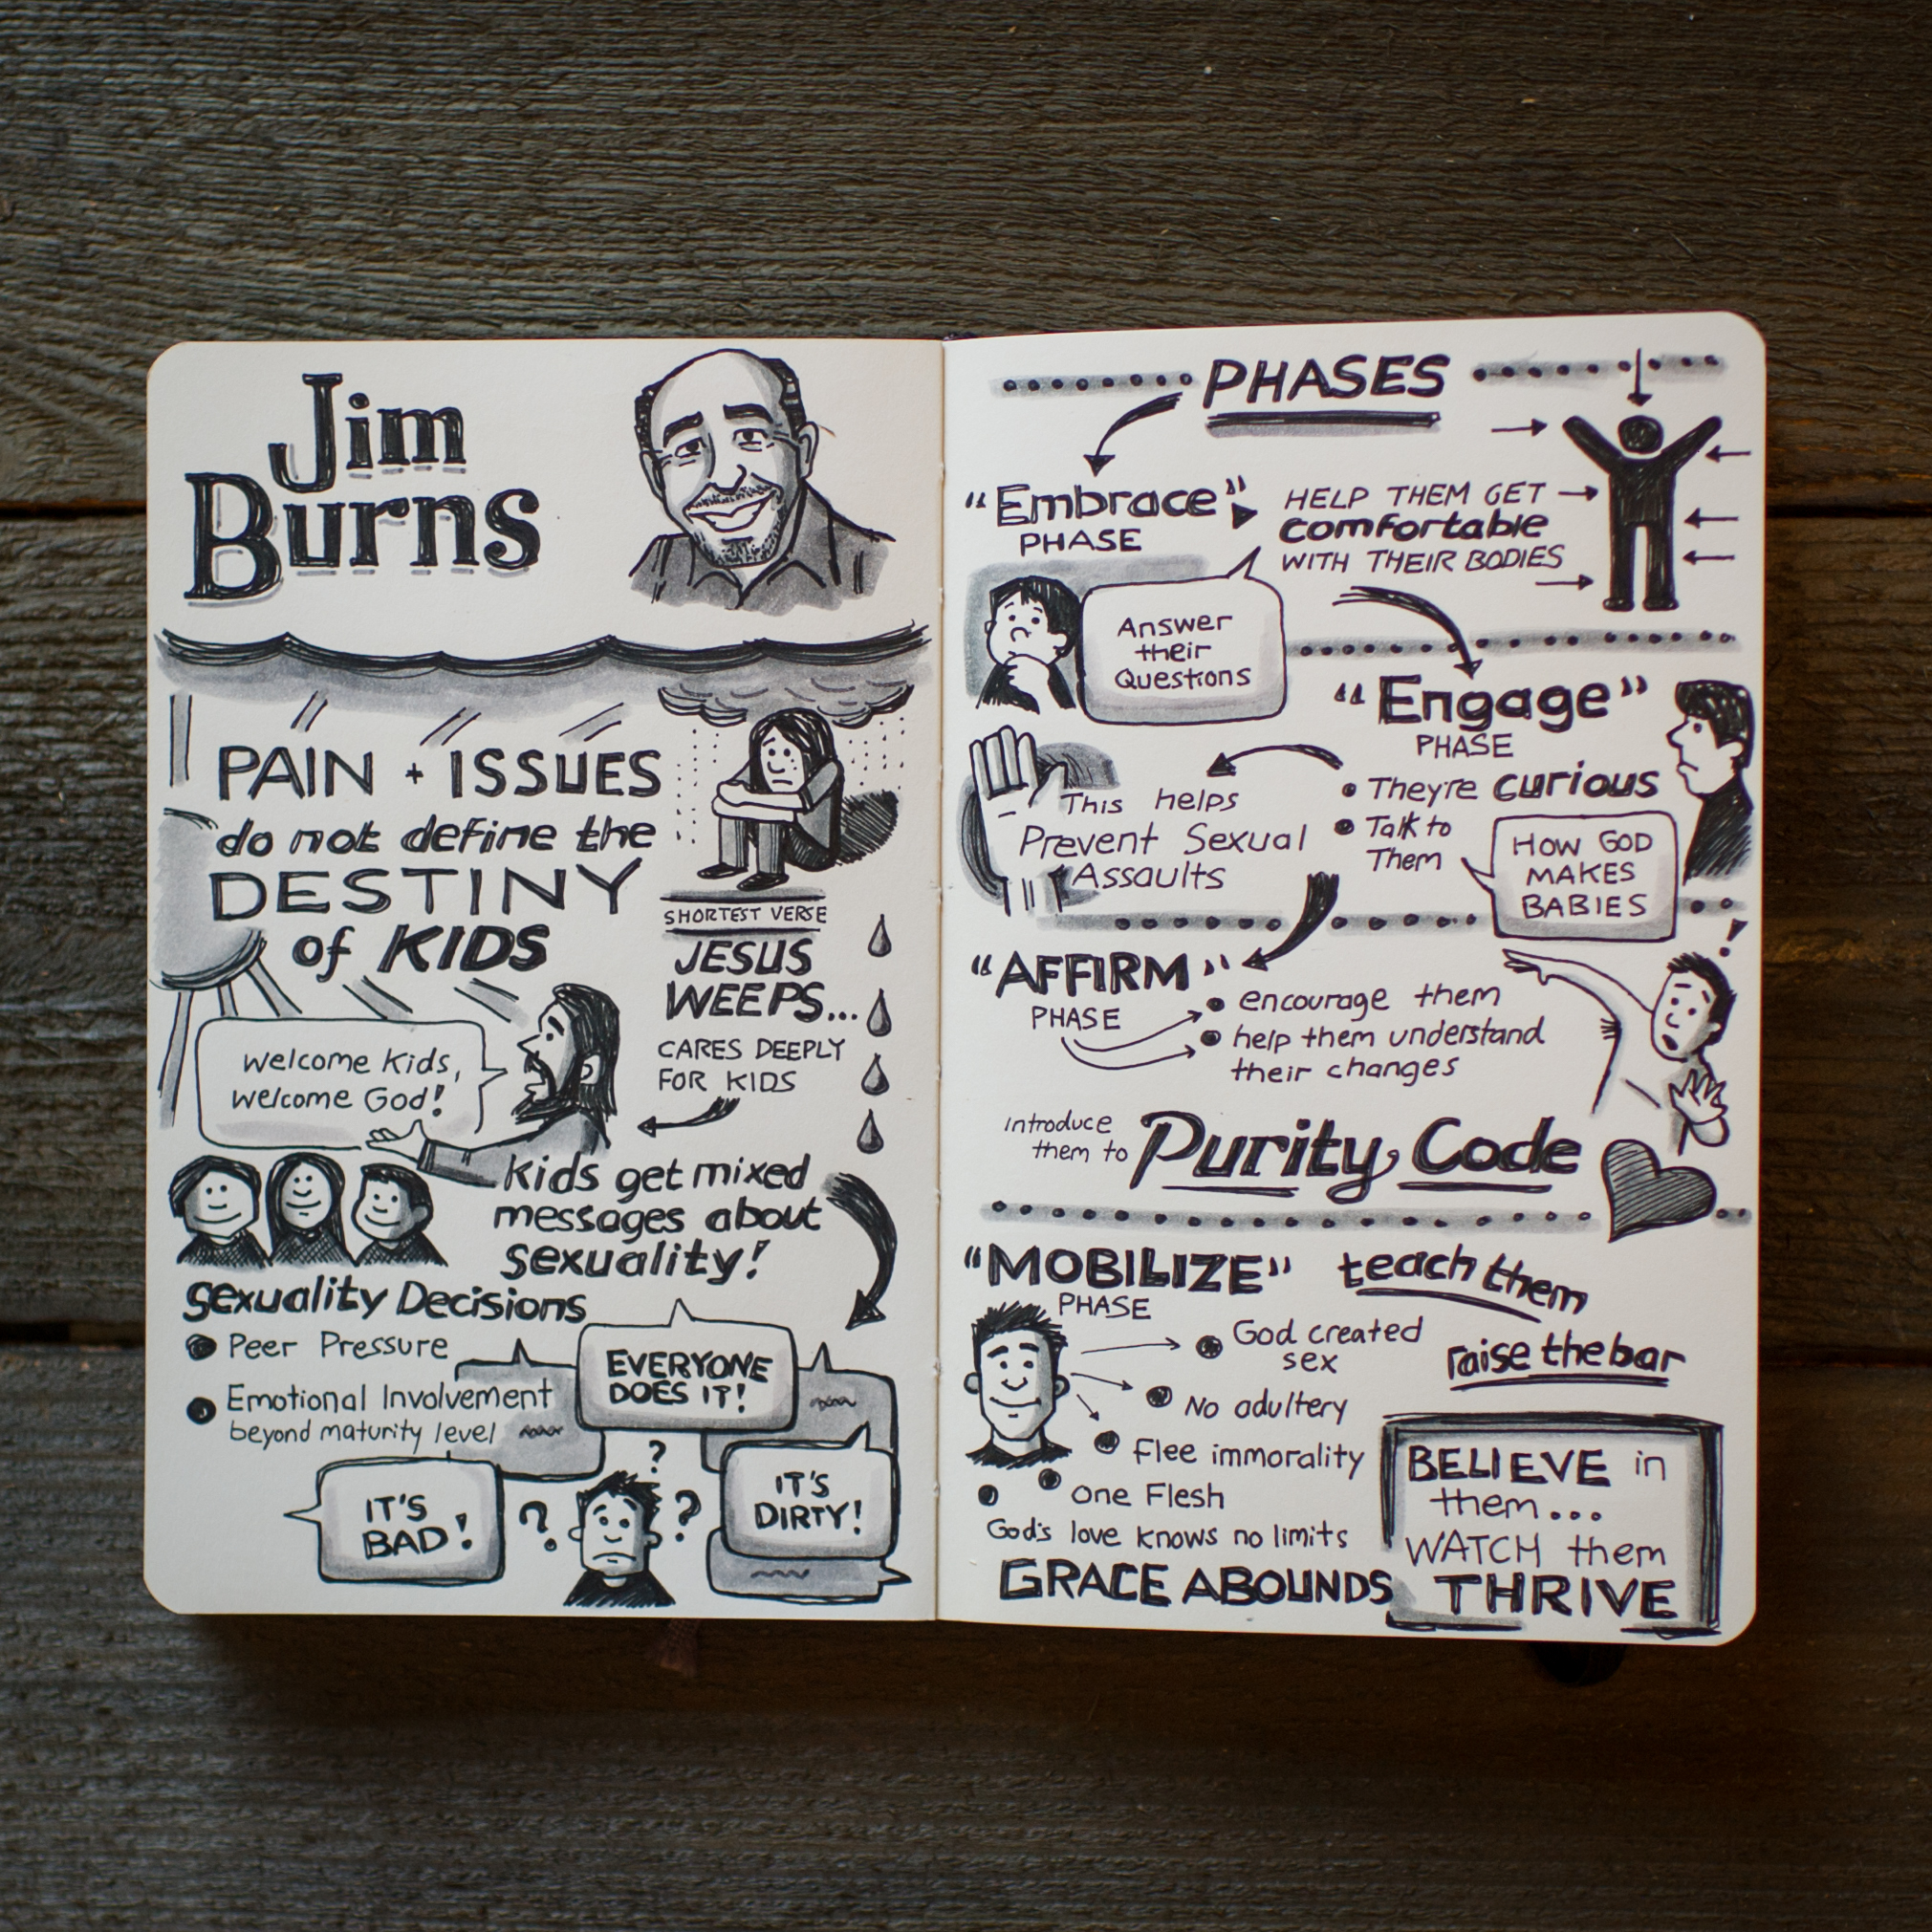 Jim
Burns
PAIN + ISSUES
do not define the
DESTINY
of KIDS
SHORTEST VERSE
JESUS
WEEPS...
CARES DEEPLY
FOR KIDS
Welcome Kids,
Welcome God!
Kids get mixed
messages about
sexuality!
Sexuality Decisions
Peer Pressure
Emotional Involvement
beyond maturity level
EVERYONE
DOES IT!
IT'S
BAD!
?
?
?
IT'S
DIRTY!
PHASES
"Embrace"
PHASE
HELP THEM GET
comfortable
WITH THEIR BODIES
Answer
their
Questions
"Engage"
PHASE
They're curious
Talk to
Them
HOW GOD
MAKES
BABIES
This helps
Prevent Sexual
Assaults
"AFFIRM"
PHASE
encourage them
help them understand
their changes
!
introduce
them to
Purity Code
"MOBILIZE"
PHASE
teach them
God created
sex
raise the bar
No adultery
Flee immorality
one Flesh
God's love knows no limits
GRACE ABOUNDS
BELIEVE in
them...
WATCH them
THRIVE